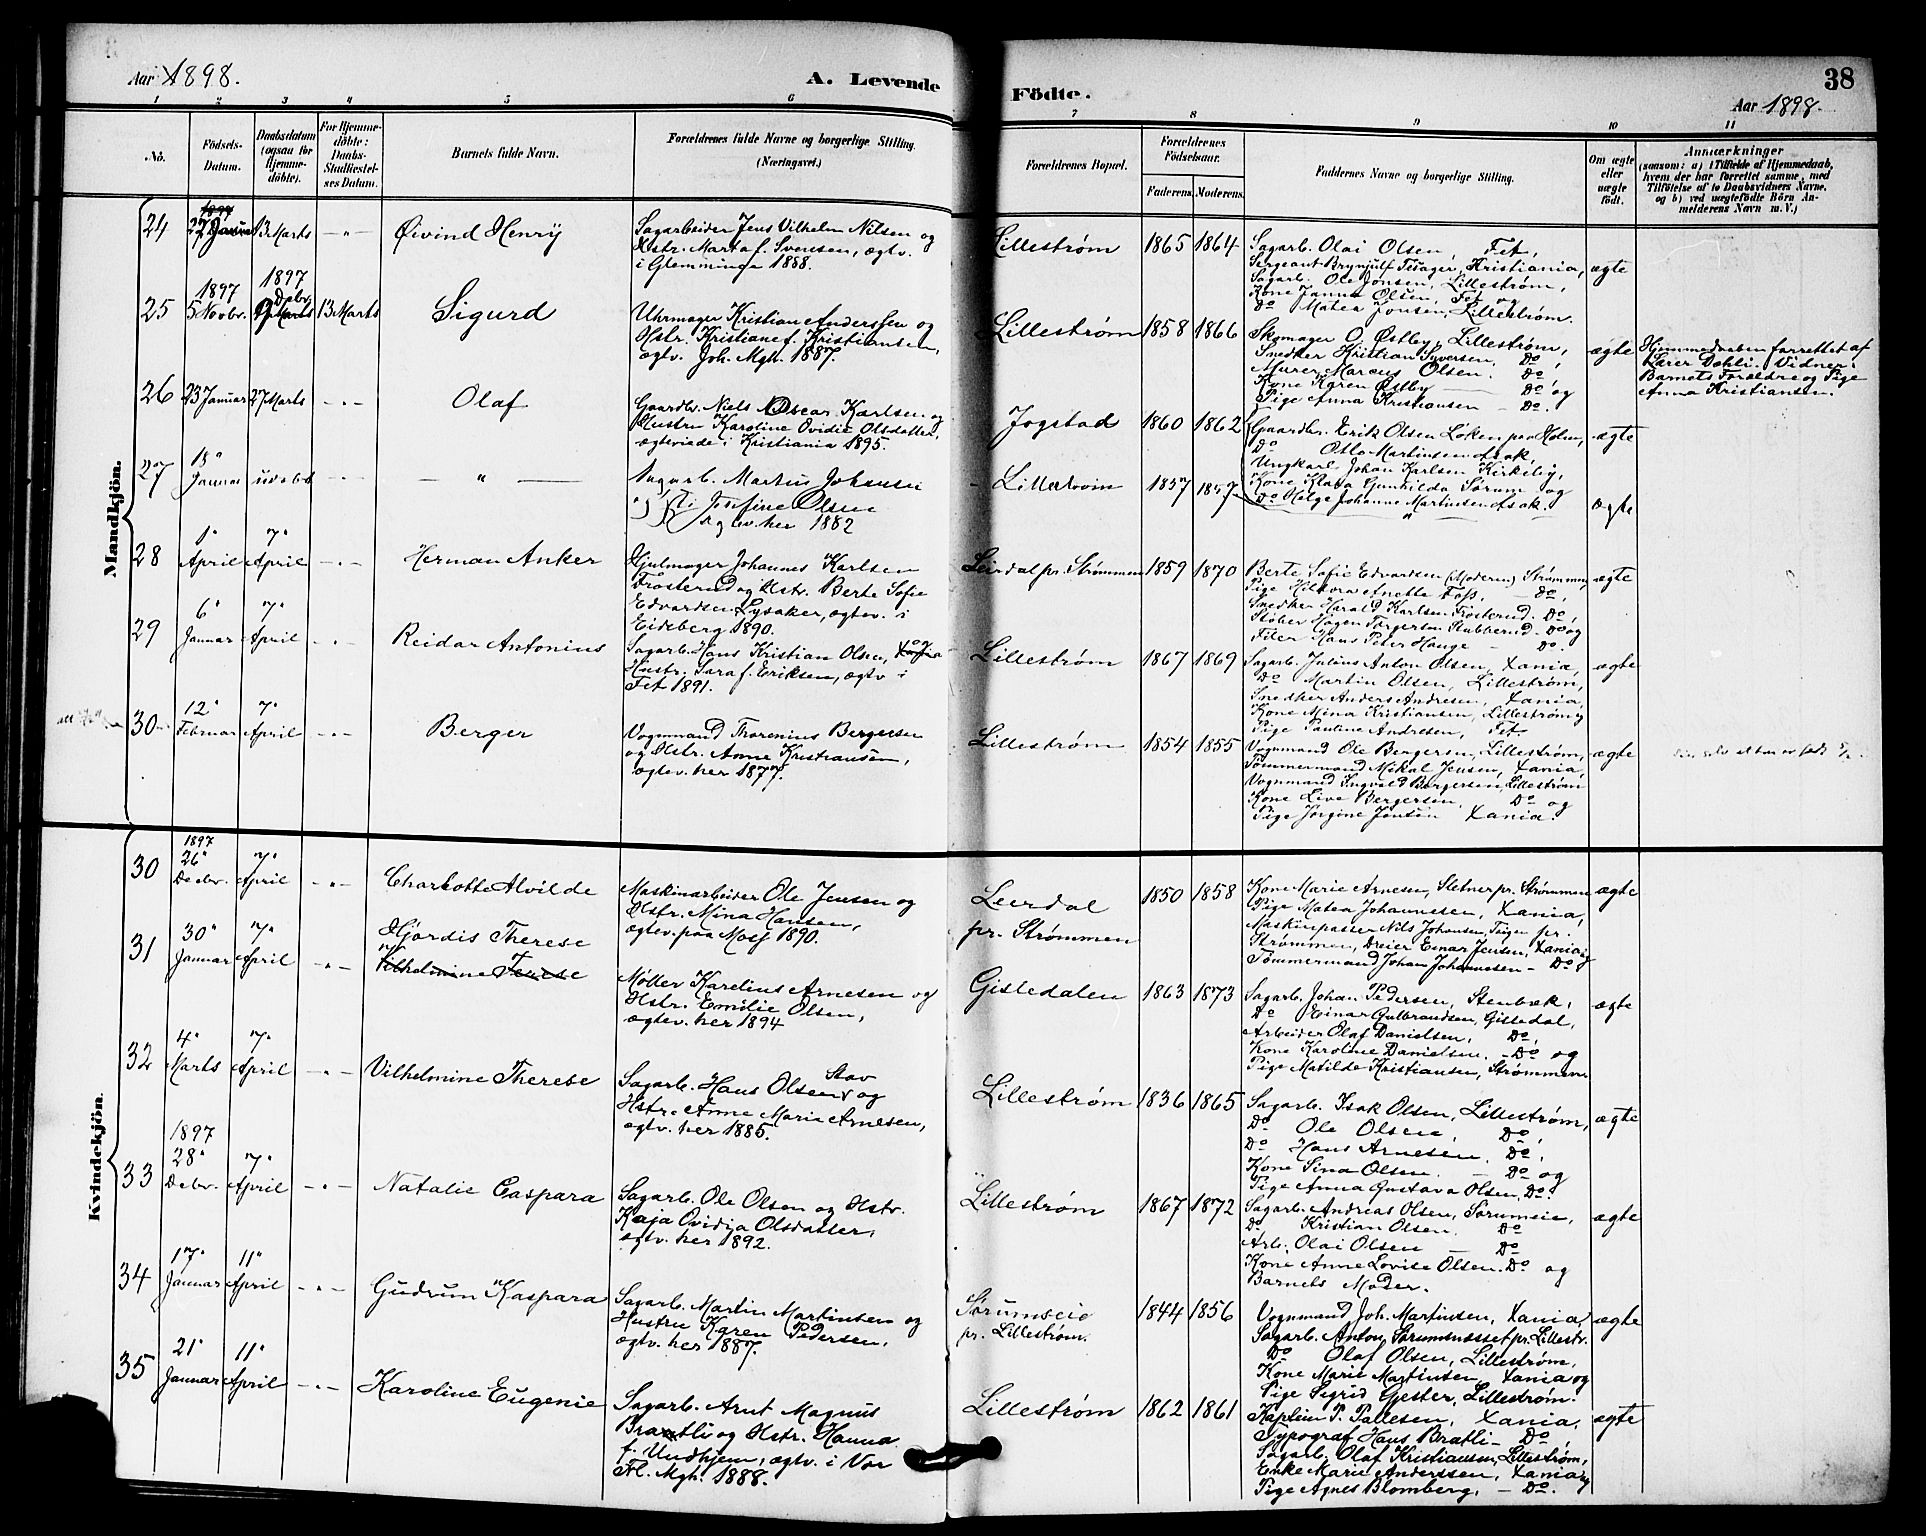 Aar 1898.
A. Levende
Födte.
38
Aar 1898.
1 2 3 4 5 6 7 8 9 10 11
No.
Födsels-Datum.
Daabsdatum (ogsaa for Hjemmedöbte).
For Hjemmedöbte: Daabs-Stadfæstelses Datum.
Barnets fulde Navn.
Forældrenes fulde Navne og borgerlige Stilling. (Næringsvei.)
Forældrenes Bopæl.
Forældrenes Födselsaar.
Faderens. Moderens.
Faddernes Navne og borgerlige Stilling.
Om ægte eller uægte födt.
Anmærkninger
(saasom: a) i Tilfælde af Hjemmedaab,
hvem der har forrettet samme, med
Tilföielse af to Daabsvidners Navne,
og b) ved uægtefödte Börn An-
melderens Navn m. V.)
Mandkjön.
24 27 Januar 13 Marts — " — Øivind Henry
Sagarbeider Jens Vilhelm Nilsen og
Hstr. Marta f. Svensen, ægtv.
i Glemminge 1888.
Lillestrøm 1865 1864
Sagarb. Olai Olsen, Fet,
Sergeant Brynjulf Tesager, Kristiania,
Sagarb. Ole Jonsen, Lillestrøm,
Kone Janna Olsen, Fet og
Do Matea Jonsen, Lillestrøm.
ægte
25 1897 5 Novbr. 1897 Debr. 13 Marts Sigurd
Uhrmager Kristian Anderssen og
Hstr. Kristiane f. Kristiansen,
ægtv. Joh. Mgh. 1887.
Lillestrøm 1858 1866
Skomager O. Østby, Lillestrøm,
Snedker Kristian Syversen, Do,
Murer Marcus Olsen, Do,
Kone Karen Østby — Do og
Pige Anna Kristiansen — Do.
ægte
Hjemmedaaben forrettet af
Lærer Dahli. Vidner:
Barnets Forældre og Pige
Anna Kristiansen.
26 23 Januar 27 Marts — " — Olaf
Gaardbr. Niels Oscar Karlsen og
Hustru Karoline Ovidie Olsdatter,
ægteviede i Kristiania 1895.
Jogstad 1860 1862
Gaardbr. Erik Olsen Løken paa Holm,
Do Otto Martinsen Asak,
Ungkarl Johan Karlsen Kirkeby,
Kone Klara Gunhilda Sørum og
Do Helga Johanne Martinsen Asak.
ægte
27 Januar udøbt — " — — " —
Sagarb. Martin Johansen
Josefine Olsen
ægtev. her 1882
1857 1857
ægte
28 1" April 7" April — " — Herman Anker
Hjulmager Johannes Karlsen
Frosterud og Hstr. Berte Sofie
Edvardsen Lysaker, ægtv. i
Eideberg 1890.
Leirdal pr. Strømmen 1859 1870
Berte Sofie Edvardsen (Moderen) Strømmen,
Pige Hildora Anette Foss, — Do,
Snedker Harald Karlsen Frosterud. Do,
Støber Hagen Torgersen Stubberud. Do og
Filer Hans Peter Hauge — Do.
ægte
29 6" Januar 7" April — " — Reidar Antonius
Sagarb. Hans Kristian Olsen, og
Hustr. Sara f. Eriksen, ægtv. i
Fet 1891.
Lillestrøm 1867 1869
Sagarb. Julius Anton Olsen, Xania,
Do Martin Olsen, Lillestrøm,
Snedker Anders Andresen, Xania,
Kone Mina Kristiansen, Lillestrøm og
Pige Pauline Andresen, Fet.
ægte
30 12" Februar 7" April — " — Berger
Vognmand Thorenius Bergersen
og Hstr. Anne Kristiansen,
ægtev. her 1877.
Lillestrøm 1854 1855
Vognmand Ole Bergersen, Lillestrøm,
Tømmermand Mikal Jensen, Xania,
Vognmand Ingvald Bergersen, Lillestrøm
Kone Live Bergersen, Do og
Pige Jørgine Jensen Xania.
ægte
Kvindekjön.
30 1897 26" Decbr. 7" April — " — Charlotte Alvilde
Maskinarbeider Ole Jensen og
Hstr. Mina Hansen,
ægtev. paa Moss 1890.
Leerdal
pr. Strømmen 1850 1858
Kone Marie Arnesen, Sletner pr. Strømmen
Pige Matea Johannessen, Xania,
Maskinpasser Nils Johansen, Teigen pr.
Strømmen, Dreier Einar Jensen, Xania og
Tømmermand Johan Johannesen — Do
ægte
31 30" Januar 7" April — " — Hjørdis Therese
Vilhelmine Terese
Møller Karelius Arnesen og
Hstr. Emilie Olsen,
ægtev. her 1894
Gistedalen 1863 1873
Sagarb. Johan Pedersen, Stenbæk,
Do Einar Gulbrandsen, Gistedal,
Arbeider Olaf Danielsen, Do,
Kone Karoline Danielsen. — Do og
Pige Matilde Kristiansen, Strømmen
ægte
32 4" Marts 7" April — " — Vilhelmine Therese
Sagarb. Hans Olsen Stav og
Hstr. Anne Marie Arnesen,
ægtv. her 1885.
Lillestrøm 1836 1865
Sagarb. Isak Olsen, Lillestrøm,
Do Ole Olsen, Do,
Do Hans Arnesen. Do,
Kone Sina Olsen. — Do og
Pige Anna Gustava Olsen, Do.
ægte
33 1897 28" Debr. 7" April — " — Natalie Caspara
Sagarb. Ole Olsen og Hstr.
Kaja Ovidia Olsdatter,
ægtv. her 1892.
Lillestrøm 1867 1872
Sagarb. Andreas Olsen, Sørumseie,
Do Kristian Olsen. Do
Arb. Olai Olsen — Do
Kone Anne Lovise Olsen. Do og
Barnets Moder.
ægte
34 17" Januar 11" April — " — Gudrun Kaspara
Sagarb. Martin Martinsen og
Hustru Karen Pedersen,
ægtv. her 1887.
Sørumseie
pr. Lillestrøm. 1844 1856
Vognmand Joh. Martinsen, Xania,
Sagarb. Anton Sørumsnesset pr. Lillestr.
Do Olaf Olsen, Lillestrøm,
Kone Marie Martinsen, Xania og
Pige Sigrid Gjester, Lillestrøm.
ægte
35 21" Januar 11" April — " — Karoline Eugenie
Sagarb. Arnt Magnus
Bratli og Hstr. Hanna
f. Undhjem, ægtv. i Vor
Fl. Mgh. 1888.
Lillestrøm 1862 1861
Kaptein P. Pallesen, Xania,
Typograf Hans Bratli — Do
Sagarb. Olaf Kristiansen, Lillestrøm,
Enke Marie Anderssen, Xania og
Pige Agnes Blomberg, — Do.
ægte